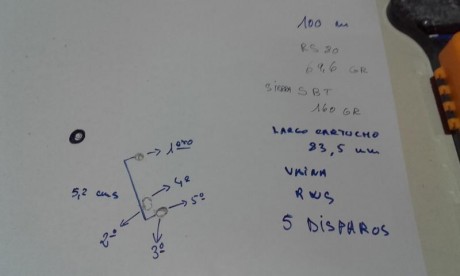 100 m
RS 20
69,6 GR
SIERRA SBT
160 GR
LARGO CARTUCHO
83,5 mm
VAINA
RWS
5 DISPAROS
1ero
5,2 cms
4º
5º
2º
3º